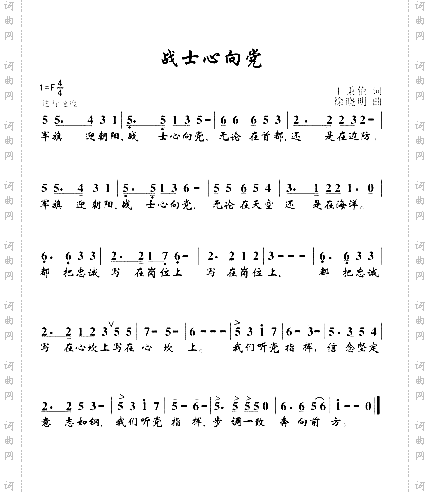 战士心向党
1=F 4/4
词
徐晓明 曲
5 5· 4 3 1 | 5· 5· 5 1 3 5 - | 6 6 6 5 3 | 2· 2 2 3 2 - |
军旗 迎朝阳、战 士心向党, 无论 在首都、还 是在边防。
5 5· 4 3 1 | 5· 5· 5 1 3 5 - | 5 5 6 5 4 | 3· 1 2 2 1· 0 |
军旗 迎朝阳、战 士心向党, 无论 在天空 还 是在海洋,
6· 6 3 3 | 2· 2 1 7 6 - | 2· 2 1 2 | 3 - - - | 6· 6 3 3 |
都 把忠诚 写 在岗位上 写 在岗位上、 都 把忠诚
2· 2 1 2 3 5 5 | 7 - 5 - | 6 - - - | 5 3 1 7 | 6 - 3 - | 5· 3 5 4 |
写 在心坎上写在 心 坎 上。 我们听党 指 挥, 信 念坚定
2· 2 5 3 - | 5 3 1 7 | 5 - 6 - | 5· 5 5 5 0 | 6· 5 6 6 | 1 - - 0 ‖
意 志如钢, 我们听党 指 挥、步 调一致 奔 向前 方。
词曲网
词曲网
词曲网
词曲网
词曲网
词曲网
词曲网
词曲网
词曲网
词曲网